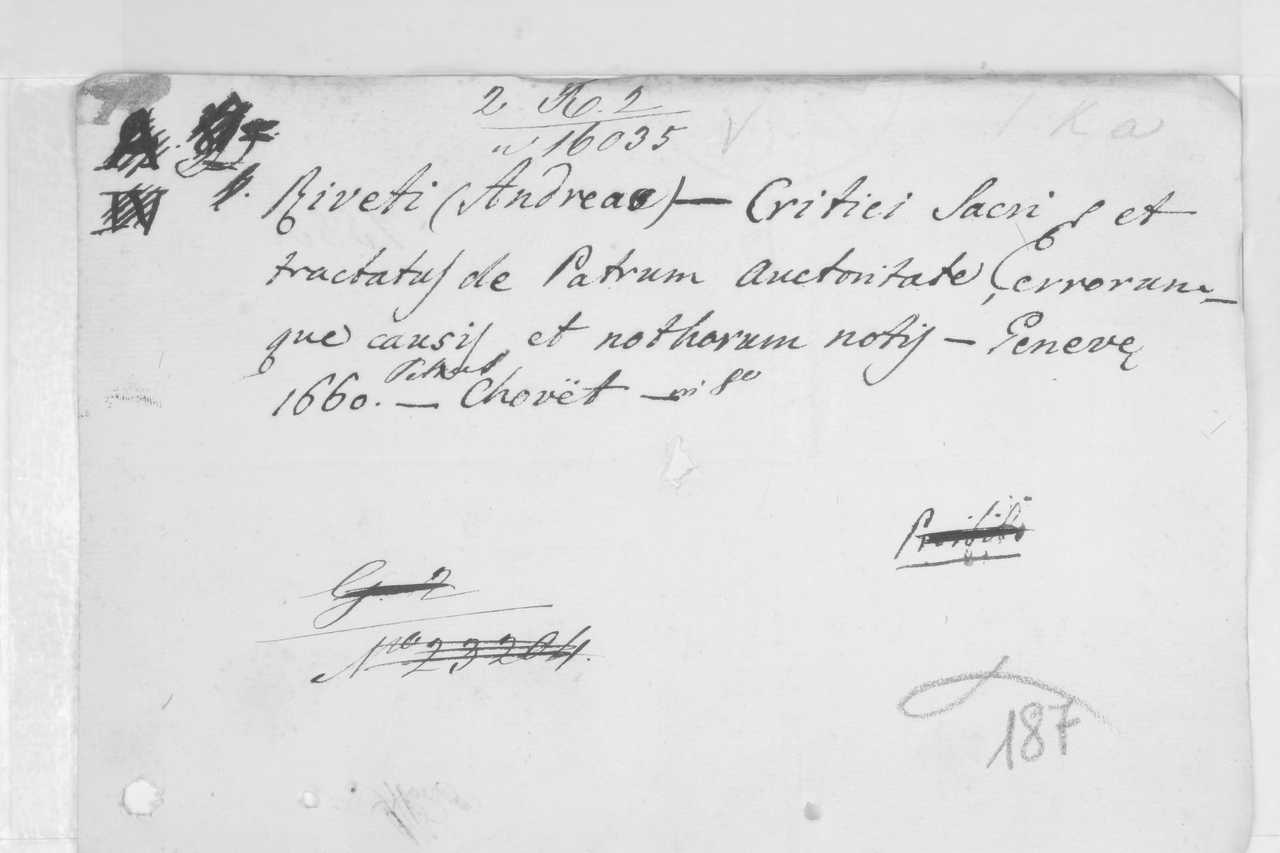 2 R. 2
nº 16035
Ka
Riveti (Andreae) — Critici Sacri et
tractatus de Patrum auctoritate, errorum-
que causis, et nothorum notis — Genevę
Petrus
1660. — Chovët — in 8º
Proibito
G. 2
Nº 23204.
187